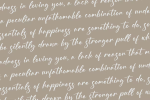 dness in loving you, a lack of reason
a peculiar unfathomable combination of under
essentials of happiness are something to do, s
be silently drawn by the stronger pull of wh
ndness in loving you, a lack of reason that m
a peculiar unfathomable combination of unde
essentials of happiness are something to do,
be silently drawn by the stronger pull of